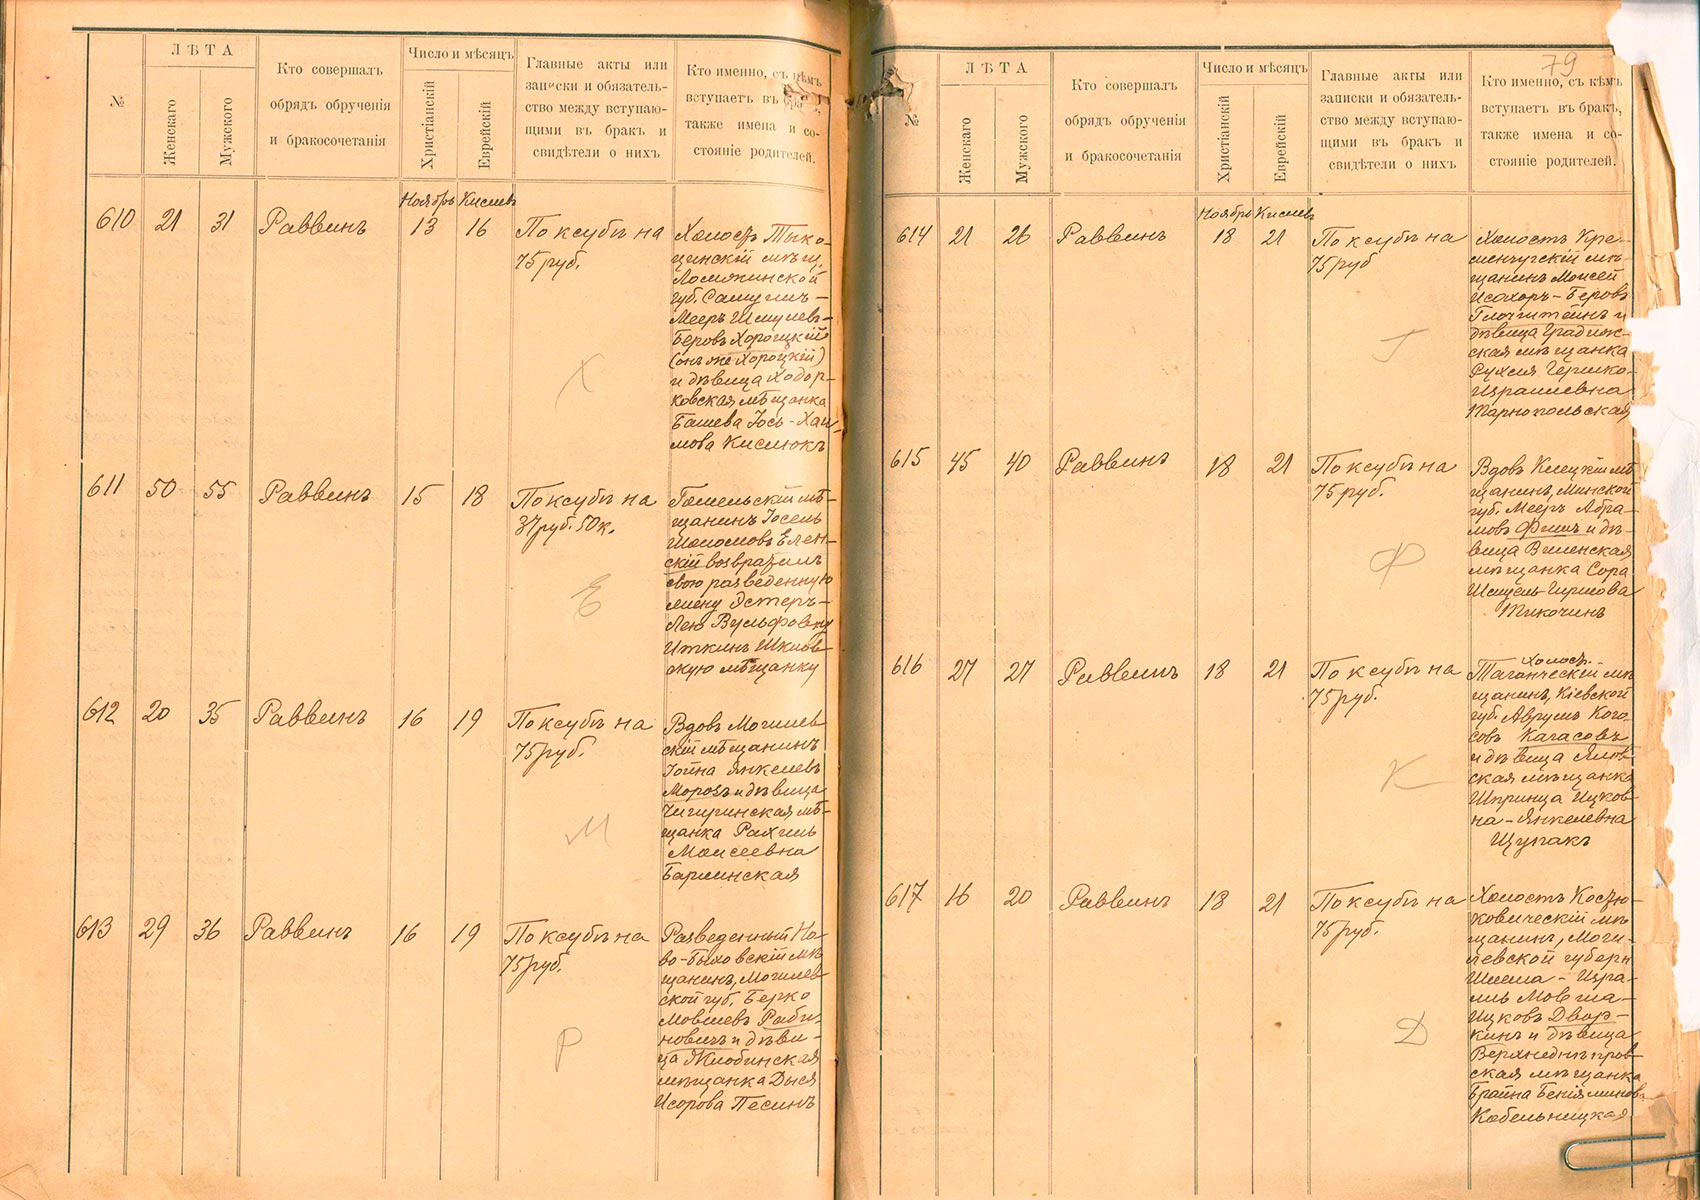 №
ЛѢТА
Женскаго
Мужского
Кто совершалъ
обрядъ обрученія
и бракосочетанія
Число и мѣсяцъ
Христіанскій
Еврейскій
Главные акты или
записки и обязатель-
ство между вступаю-
щими въ бракъ и
свидѣтели о нихъ
Кто именно, съ кѣмъ
вступаетъ въ бракъ,
также имена и со-
стояніе родителей.
Ноябрь Кислевъ
610 21 31 Раввинъ 13 16 По ксубѣ на
75 руб.
Холостъ Тыко-
цинскій мѣщ.
Ломжинской
губ. Самуилъ-
Мееръ Шмулевъ-
Беровъ Хорощкій
(онъ же Хороцкій)
и дѣвица Ходор-
ковская мѣщанка
Башева Іось-Хаи-
мова Кислюкъ
Х
611 50 55 Раввинъ 15 18 По ксубѣ на
37 руб. 50 к.
Гомельскій мѣ-
щанинъ Іосель
Шоломовъ Елен-
скій возвратилъ
свою разведенную
жену Эстеръ-
Лею Вульфовну
Иткинъ Шклов-
скую мѣщанку
Е
612 20 35 Раввинъ 16 19 По ксубѣ на
75 руб.
Вдовъ Могилев-
скій мѣщанинъ
Іойна Янкелевъ
Морозъ и дѣвица
Чигиринская мѣ-
щанка Рахиль
Моисеевна
Барминская
М
613 29 36 Раввинъ 16 19 По ксубѣ на
75 руб.
Разведенный Но-
во-Быховскій мѣ-
щанинъ, Могилев-
ской губ. Берко
Мовшевъ Раби-
новичъ и дѣви-
ца Жлобинская
мѣщанка Дыся
Исорова Песинъ
Р
79
№
ЛѢТА
Женскаго
Мужского
Кто совершалъ
обрядъ обрученія
и бракосочетанія
Число и мѣсяцъ
Христіанскій
Еврейскій
Главные акты или
записки и обязатель-
ство между вступаю-
щими въ бракъ и
свидѣтели о нихъ
Кто именно, съ кѣмъ
вступаетъ въ бракъ,
также имена и со-
стояніе родителей.
Ноябрь Кислевъ
614 21 26 Раввинъ 18 21 По ксубѣ на
75 руб
Холостъ Кре-
менчугскій мѣ-
щанинъ Моисей
Исохоръ-Беровъ
и
дѣвица Градиж-
ская мѣщанка
Рухля Гершко-
Израилевна
Тарнопольская
Г
615 45 40 Раввинъ 18 21 По ксубѣ на
75 руб.
Вдовъ Клецкій мѣ-
щанинъ, Минской
губ. Мееръ Абра-
мовъ Фишъ и дѣ-
вица Виленская
мѣщанка Сора
Шмуель-Гиршова
Тикочинъ
Ф
616 27 27 Раввинъ 18 21 По ксубѣ на
75 руб.
Холостъ
Таганческій мѣ-
щанинъ, Кіевской
губ. Аврумъ Кого-
совъ Кагасовъ
и дѣвица Ялтов-
ская мѣщанка
Шпринца Ицков-
на-Янкелевна
Щупакъ
К
617 16 20 Раввинъ 18 21 По ксубѣ на
75 руб.
Холостъ Костю-
ковическій мѣ-
щанинъ, Моги-
левской губерн
Шлема-Изра-
иль Мовша-
Ицковъ Двор-
кинъ и дѣвица
Верхнеднѣпров-
ская мѣщанка
Брайна Беніяминов-
Кобельницкая
Д